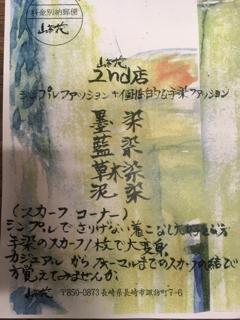 料金別納郵便
2nd店
シンプルファッション+個性的な手染ファッション
墨 染
藍 染
草木染
泥 染
(スカーフ コーナー)
シンプルでさりげない着こなし大好きな方
手染のスカーフ1枚で大変身
カジュアルからフォーマルまでのスカーフの結び
方覚えてみませんか
〒850-0873 長崎県長崎市諏訪町7-6